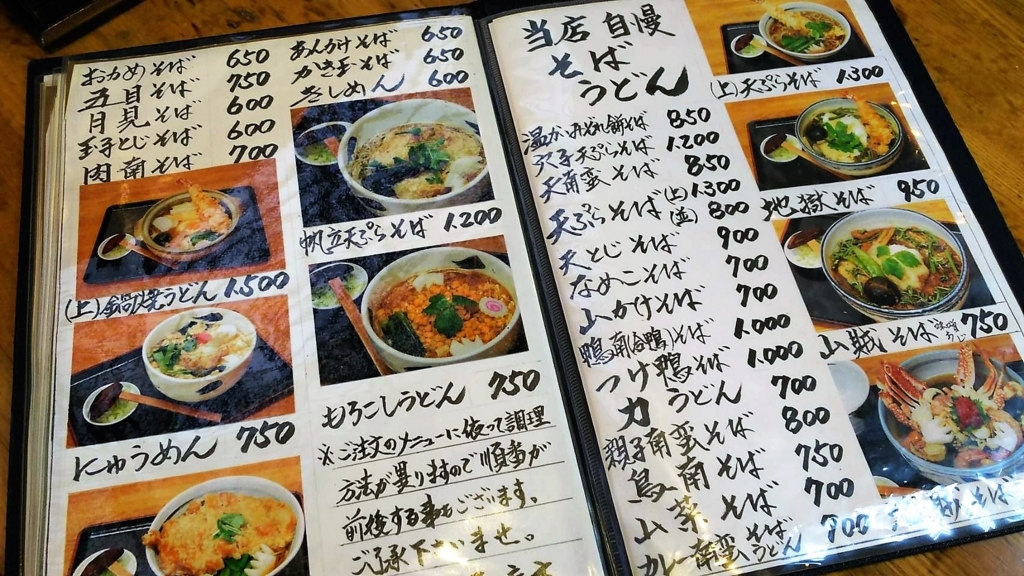 おかめそば 650
五目そば 750
月見そば 600
玉子とじそば 600
肉南そば 700
(上)鍋焼うどん 1.500
にゅうめん 750
あんかけそば 650
かき玉そば 650
きしめん 600
帆立天ぷらそば 1.200
もろこしうどん 750
※ご注文のメニューに依って調理
方法が異りますので順番が
前後する事もございます。
ご了承下さいませ。
当店自慢
そば
うどん
温かいみぞれ餅そば 850
穴子天ぷらそば 1.200
天南蛮そば 850
天ぷらそば (上)1.300
(並)800
天とじそば 900
なめこそば 700
山かけそば 700
鴨南(合鴨)そば 1.000
つけ鴨そば 1.000
力うどん 700
親子南蛮そば 800
鳥南そば 750
山菜そば 700
カレー南蛮そばうどん 700
(上)天ぷらそば 1.300
地獄そば 950
山賊そば 750
そば